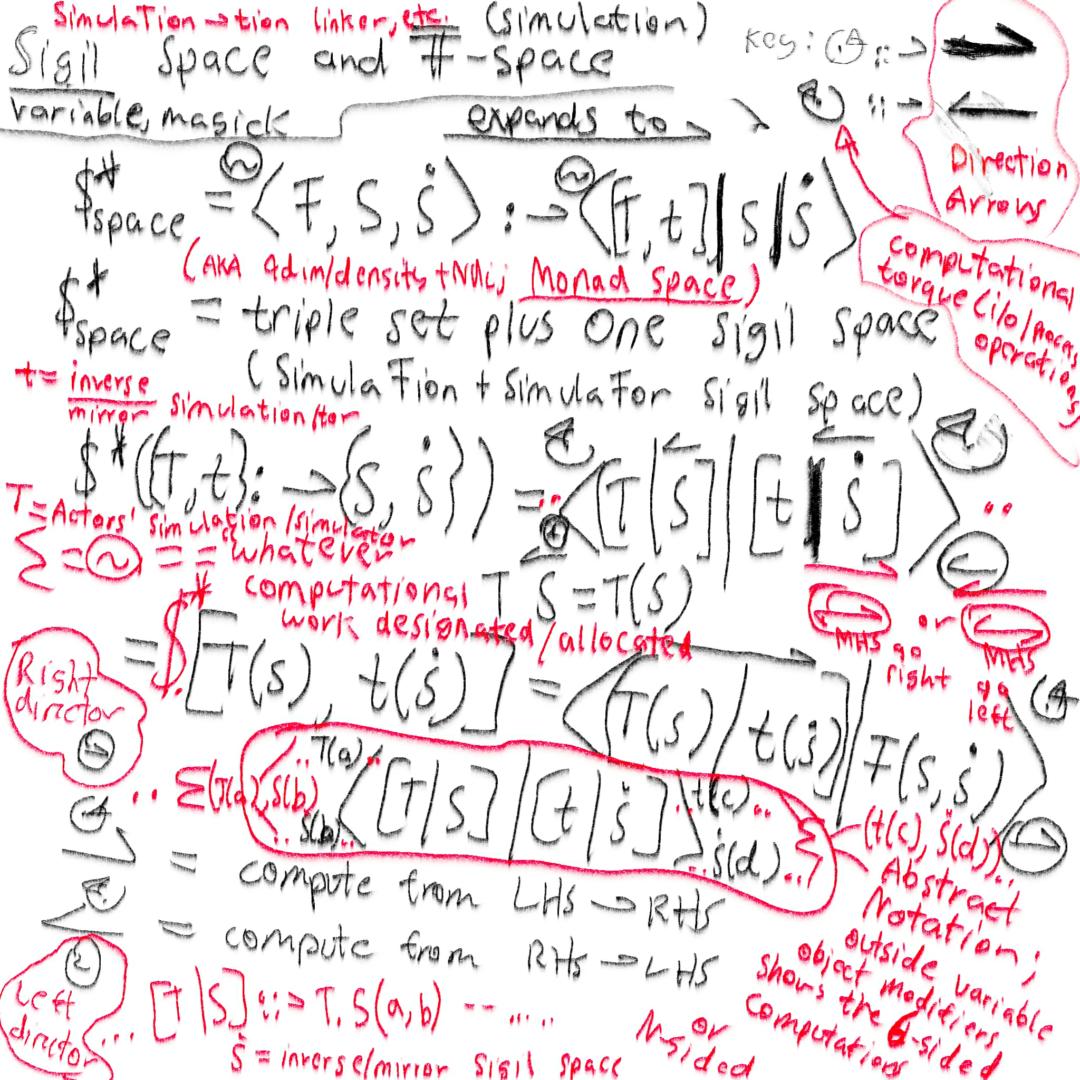 SimulaTion → tion linker, etc. (simulation)
Sigil Space and #-space
Key: :: →
:: →
variable, magick expands to
Direction
Arrows
$* space = ~ < T, S, ṡ > : → ~ < [T, t] | S | ṡ >
(AKA 4dim/density + Nth; Monad Space)
computational
torque (i/o/process
operations)
$* space = triple set plus one sigil space
(SimulaTion + SimulaTor Sigil Space)
t = inverse
mirror simulation/tor
$* ({T, t} : → {S, ṡ}) = < [T | S] | [t | ṡ] > ..
T = Actors' simulation/simulator
Σ = ~ = = "whatever
computational
work designated/allocated
T S = T(S)
MHS or MHS
go right
go left
Right
director
= $* [T(s), t(ṡ)] = < [T(s) | t(ṡ)] | T(s, ṡ) >
.. Σ(T(a), S(b) .. T(a) .. S(b) .. < [T | S] | [t | ṡ] > .. t(c) .. ṡ(d) .. Σ (t(c), ṡ(d)) ..
= compute from LHS → RHS
= compute from RHS → LHS
Abstract
Notation;
outside variable
object modifiers
shows the 6-sided
computations
or
N-sided
Left
director
... [T | S] :: > T. S(a, b) -- ....
ṡ = inverse/mirror sigil space